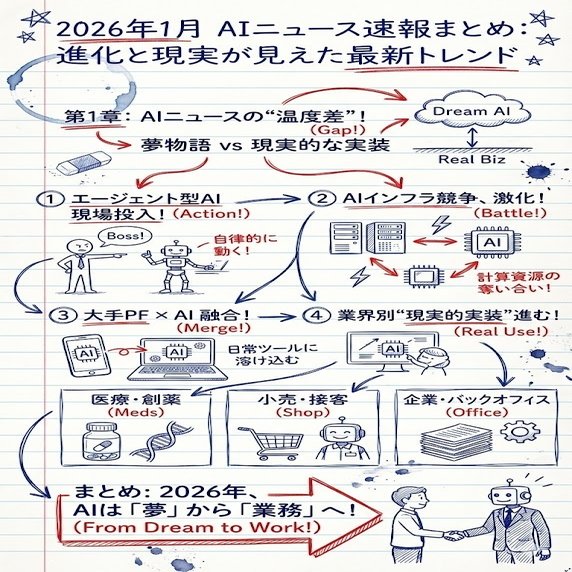 2026年1月 AIニュース速報まとめ:
進化と現実が見えた最新トレンド
第1章: AIニュースの“温度差”!
(Gap!)
夢物語 vs 現実的な実装
Dream AI
Real Biz
① エージェント型AI
現場投入! (Action!)
Boss!
自律的に
動く!
② AIインフラ競争、激化!
(Battle!)
AI
計算資源の
奪い合い!
③ 大手PF × AI 融合!
(Merge!)
AI
AI
日常ツールに
溶け込む
④ 業界別“現実的実装”進む!
(Real Use!)
AI
医療・創薬
(Meds)
小売・接客
(Shop)
企業・バックオフィス
(Office)
まとめ: 2026年、
AIは「夢」から「業務」へ!
(From Dream to Work!)